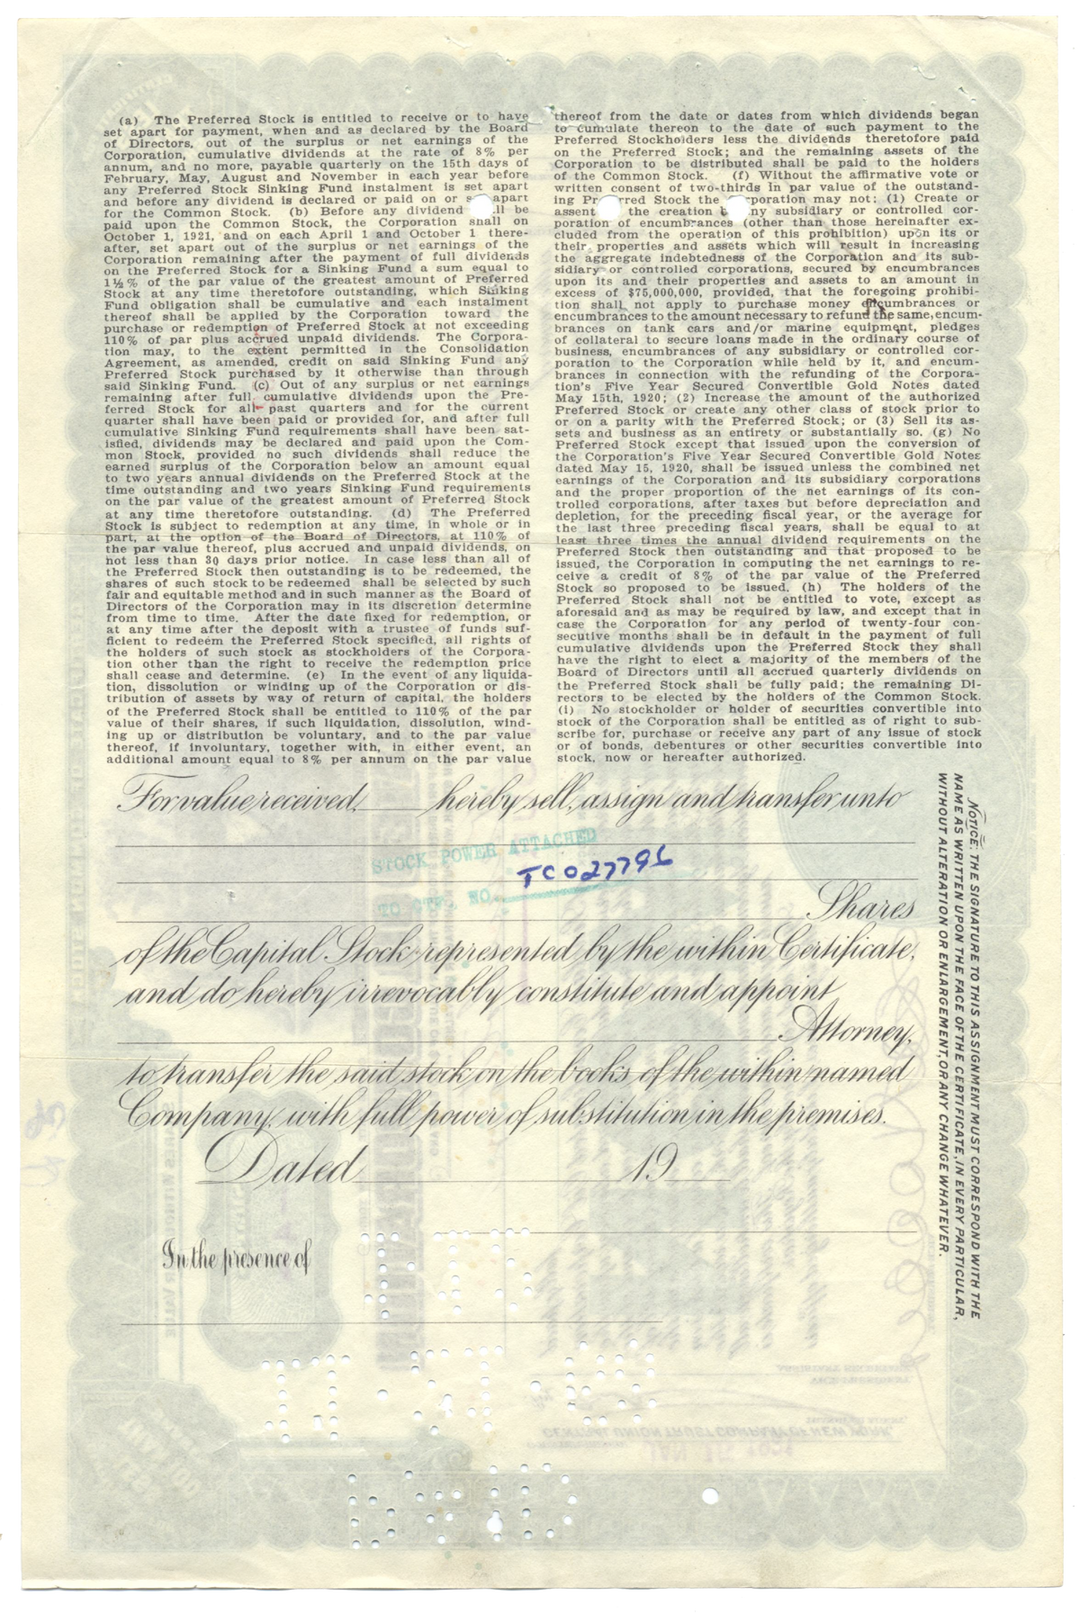 (a) The Preferred Stock is entitled to receive or to have
set apart for payment, when and as declared by the Board
of Directors, out of the surplus or net earnings of the
Corporation, cumulative dividends at the rate of 8% per
annum, and no more, payable quarterly on the 15th days of
February, May, August and November in each year before
any Preferred Stock Sinking Fund instalment is set apart
and before any dividend is declared or paid on or apart
for the Common Stock. (b) Before any dividend be
paid upon the Common Stock, the Corporation shall on
October 1, 1921, and on each April 1 and October 1 there-
after, set apart out of the surplus or net earnings of the
Corporation remaining after the payment of full dividends
on the Preferred Stock for a Sinking Fund a sum equal to
1½% of the par value of the greatest amount of Preferred
Stock at any time theretofore outstanding, which Sinking
Fund obligation shall be cumulative and each instalment
thereof shall be applied by the Corporation toward the
purchase or redemption of Preferred Stock at not exceeding
110% of par plus accrued unpaid dividends. The Corpora-
tion may, to the extent permitted in the Consolidation
Agreement, as amended, credit on said Sinking Fund any
Preferred Stock purchased by it otherwise than through
said Sinking Fund. (c) Out of any surplus or net earnings
remaining after full cumulative dividends upon the Pre-
ferred Stock for all past quarters and for the current
quarter shall have been paid or provided for, and after full
cumulative Sinking Fund requirements shall have been sat-
isfied, dividends may be declared and paid upon the Com-
mon Stock, provided no such dividends shall reduce the
earned surplus of the Corporation below an amount equal
to two years annual dividends on the Preferred Stock at the
time outstanding and two years Sinking Fund requirements
on the par value of the greatest amount of Preferred Stock
at any time theretofore outstanding. (d) The Preferred
Stock is subject to redemption at any time, in whole or in
part, at the option of the Board of Directors, at 110% of
the par value thereof, plus accrued and unpaid dividends, on
not less than 30 days prior notice. In case less than all of
the Preferred Stock then outstanding is to be redeemed, the
shares of such stock to be redeemed shall be selected by such
fair and equitable method and in such manner as the Board of
Directors of the Corporation may in its discretion determine
from time to time. After the date fixed for redemption, or
at any time after the deposit with a trustee of funds suf-
ficient to redeem the Preferred Stock specified, all rights of
the holders of such stock as stockholders of the Corpora-
tion other than the right to receive the redemption price
shall cease and determine. (e) In the event of any liquida-
tion, dissolution or winding up of the Corporation or dis-
tribution of assets by way of return of capital, the holders
of the Preferred Stock shall be entitled to 110% of the par
value of their shares, if such liquidation, dissolution, wind-
ing up or distribution be voluntary, and to the par value
thereof, if involuntary, together with, in either event, an
additional amount equal to 8% per annum on the par value
thereof from the date or dates from which dividends began
to cumulate thereon to the date of such payment to the
Preferred Stockholders less the dividends theretofore paid
on the Preferred Stock; and the remaining assets of the
Corporation to be distributed shall be paid to the holders
of the Common Stock. (f) Without the affirmative vote or
written consent of two-thirds in par value of the outstand-
ing Preferred Stock the Corporation may not: (1) Create or
assent the creation any subsidiary or controlled cor-
poration of encumbrances (other than those hereinafter ex-
cluded from the operation of this prohibition) upon its or
their properties and assets which will result in increasing
the aggregate indebtedness of the Corporation and its sub-
sidiary or controlled corporations, secured by encumbrances
upon its and their properties and assets to an amount in
excess of $75,000,000, provided, that the foregoing prohibi-
tion shall not apply to purchase money encumbrances or
encumbrances to the amount necessary to refund the same, encum-
brances on tank cars and/or marine equipment, pledges
of collateral to secure loans made in the ordinary course of
business, encumbrances of any subsidiary or controlled cor-
poration to the Corporation while held by it, and encum-
brances in connection with the refunding of the Corpora-
tion's Five Year Secured Convertible Gold Notes dated
May 15th, 1920; (2) Increase the amount of the authorized
Preferred Stock or create any other class of stock prior to
or on a parity with the Preferred Stock; or (3) Sell its as-
sets and business as an entirety or substantially so. (g) No
Preferred Stock except that issued upon the conversion of
the Corporation's Five Year Secured Convertible Gold Notes
dated May 15, 1920, shall be issued unless the combined net
earnings of the Corporation and its subsidiary corporations
and the proper proportion of the net earnings of its con-
trolled corporations, after taxes but before depreciation and
depletion, for the preceding fiscal year, or the average for
the last three preceding fiscal years, shall be equal to at
least three times the annual dividend requirements on the
Preferred Stock then outstanding and that proposed to be
issued, the Corporation in computing the net earnings to re-
ceive a credit of 8% of the par value of the Preferred
Stock so proposed to be issued. (h) The holders of the
Preferred Stock shall not be entitled to vote, except as
aforesaid and as may be required by law, and except that in
case the Corporation for any period of twenty-four con-
secutive months shall be in default in the payment of full
cumulative dividends upon the Preferred Stock they shall
have the right to elect a majority of the members of the
Board of Directors until all accrued quarterly dividends on
the Preferred Stock shall be fully paid; the remaining Di-
rectors to be elected by the holders of the Common Stock.
(i) No stockholder or holder of securities convertible into
stock of the Corporation shall be entitled as of right to sub-
scribe for, purchase or receive any part of any issue of stock
or of bonds, debentures or other securities convertible into
stock, now or hereafter authorized.
For value received, hereby sell, assign and transfer unto
STOCK POWER ATTACHED
TO CTF. NO. TC027796
Shares
of the Capital Stock represented by the within Certificate,
and do hereby irrevocably constitute and appoint
Attorney,
to transfer the said stock on the books of the within named
Company, with full power of substitution in the premises.
Dated 19
In the presence of
NOTICE: THE SIGNATURE TO THIS ASSIGNMENT MUST CORRESPOND WITH THE
NAME AS WRITTEN UPON THE FACE OF THE CERTIFICATE, IN EVERY PARTICULAR,
WITHOUT ALTERATION OR ENLARGEMENT, OR ANY CHANGE WHATEVER.